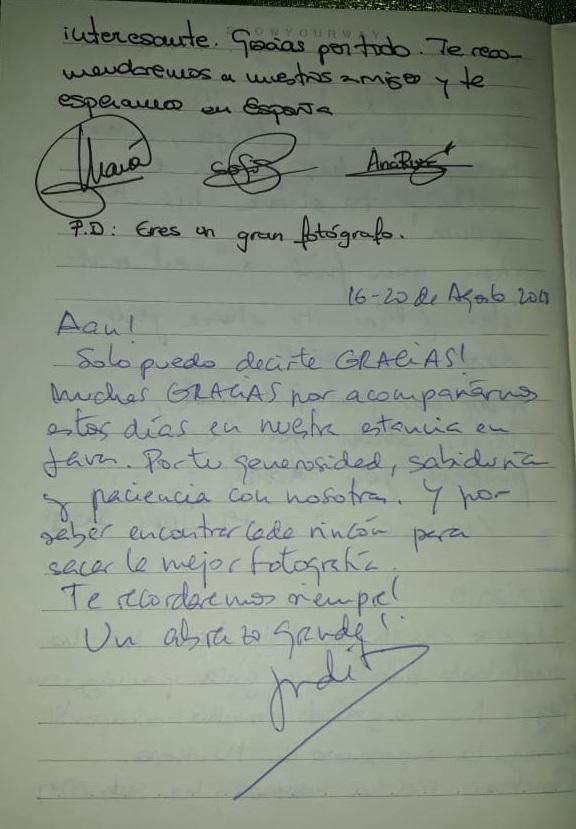 interesante. Gracias por todo. Te reco-
mendaremos a nuestros amigos y te
esperamos en España
María Ana
P.D: Eres un gran fotógrafo.
16-20 de Agosto
Aan!
Solo puedo decirte GRACIAS!
Muchas GRACIAS por acompañarnos
estos días en nuestra estancia en
Java. Por tu generosidad, sabiduría
y paciencia con nosotras. Y por
saber encontrar cada rincón para
sacar la mejor fotografía.
Te recordaremos siempre!
Un abrazo grande!
Judit